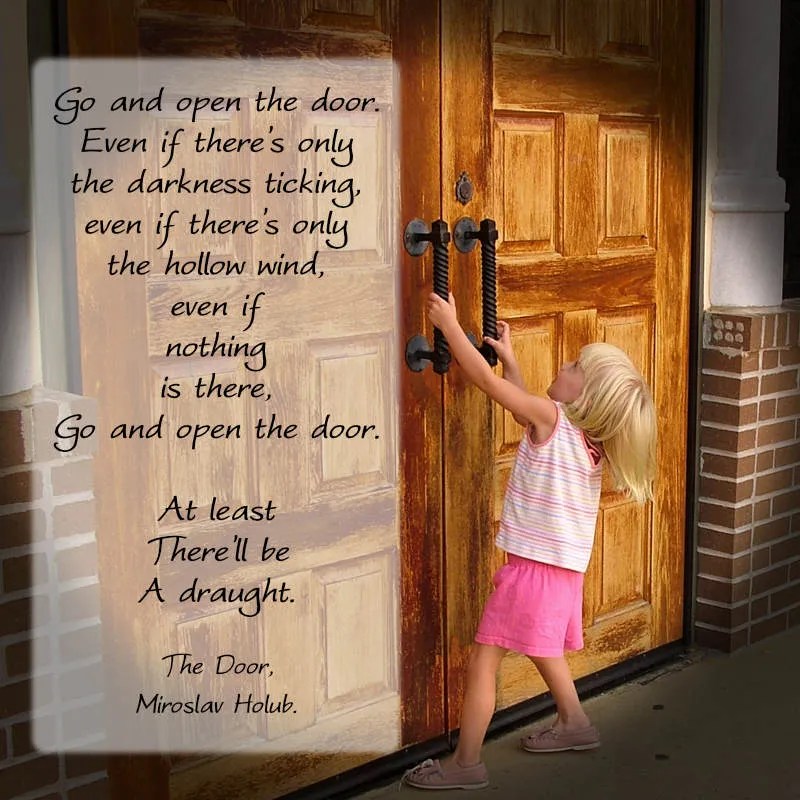 Go and open the door.
Even if there's only
the darkness ticking,
even if there's only
the hollow wind,
even if
nothing
is there,
Go and open the door.
At least
There'll be
A draught.
The Door,
Miroslav Holub.